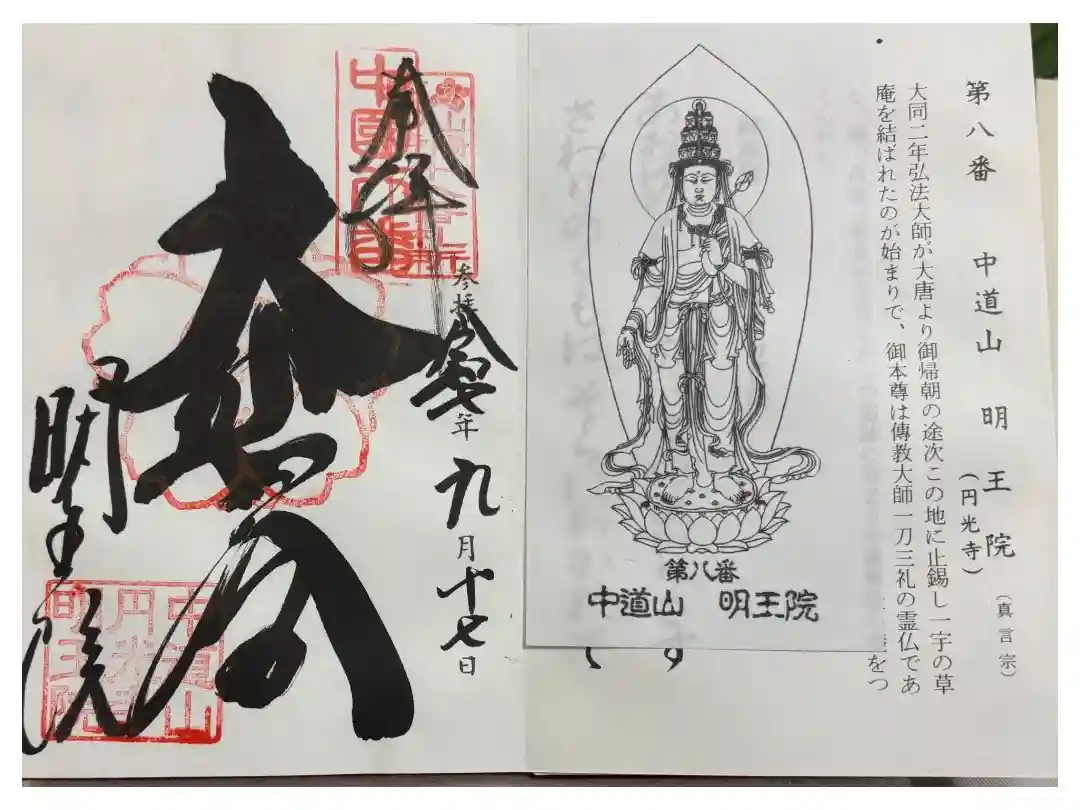 第八番　中道山　明王院
（円光寺）
（真言宗）
大同二年弘法大師が大唐より御帰朝の途次この地に止錫し一宇の草
庵を結ばれたのが始まりで、御本尊は傳教大師一刀三礼の霊仏であ
をつ
第八番
中道山　明王院
奉拝
参拝
年九月十七日
大悲
明王院
中道山
円光寺
明王院